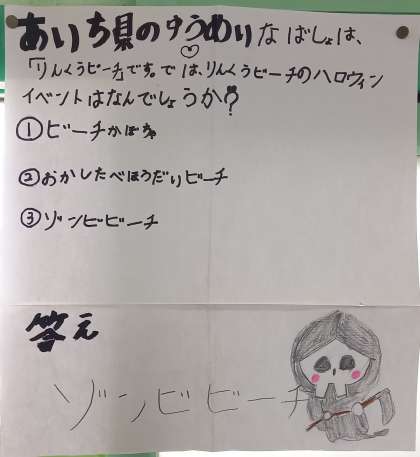 あいち県のゆうめいなばしょは、
「りんくうビーチ」です。では、りんくうビーチのハロウィン
イベントはなんでしょうか?
①ビーチかぼちゃ
②おかしたべほうだいビーチ
③ゾンビビーチ
答え
ゾンビビーチ